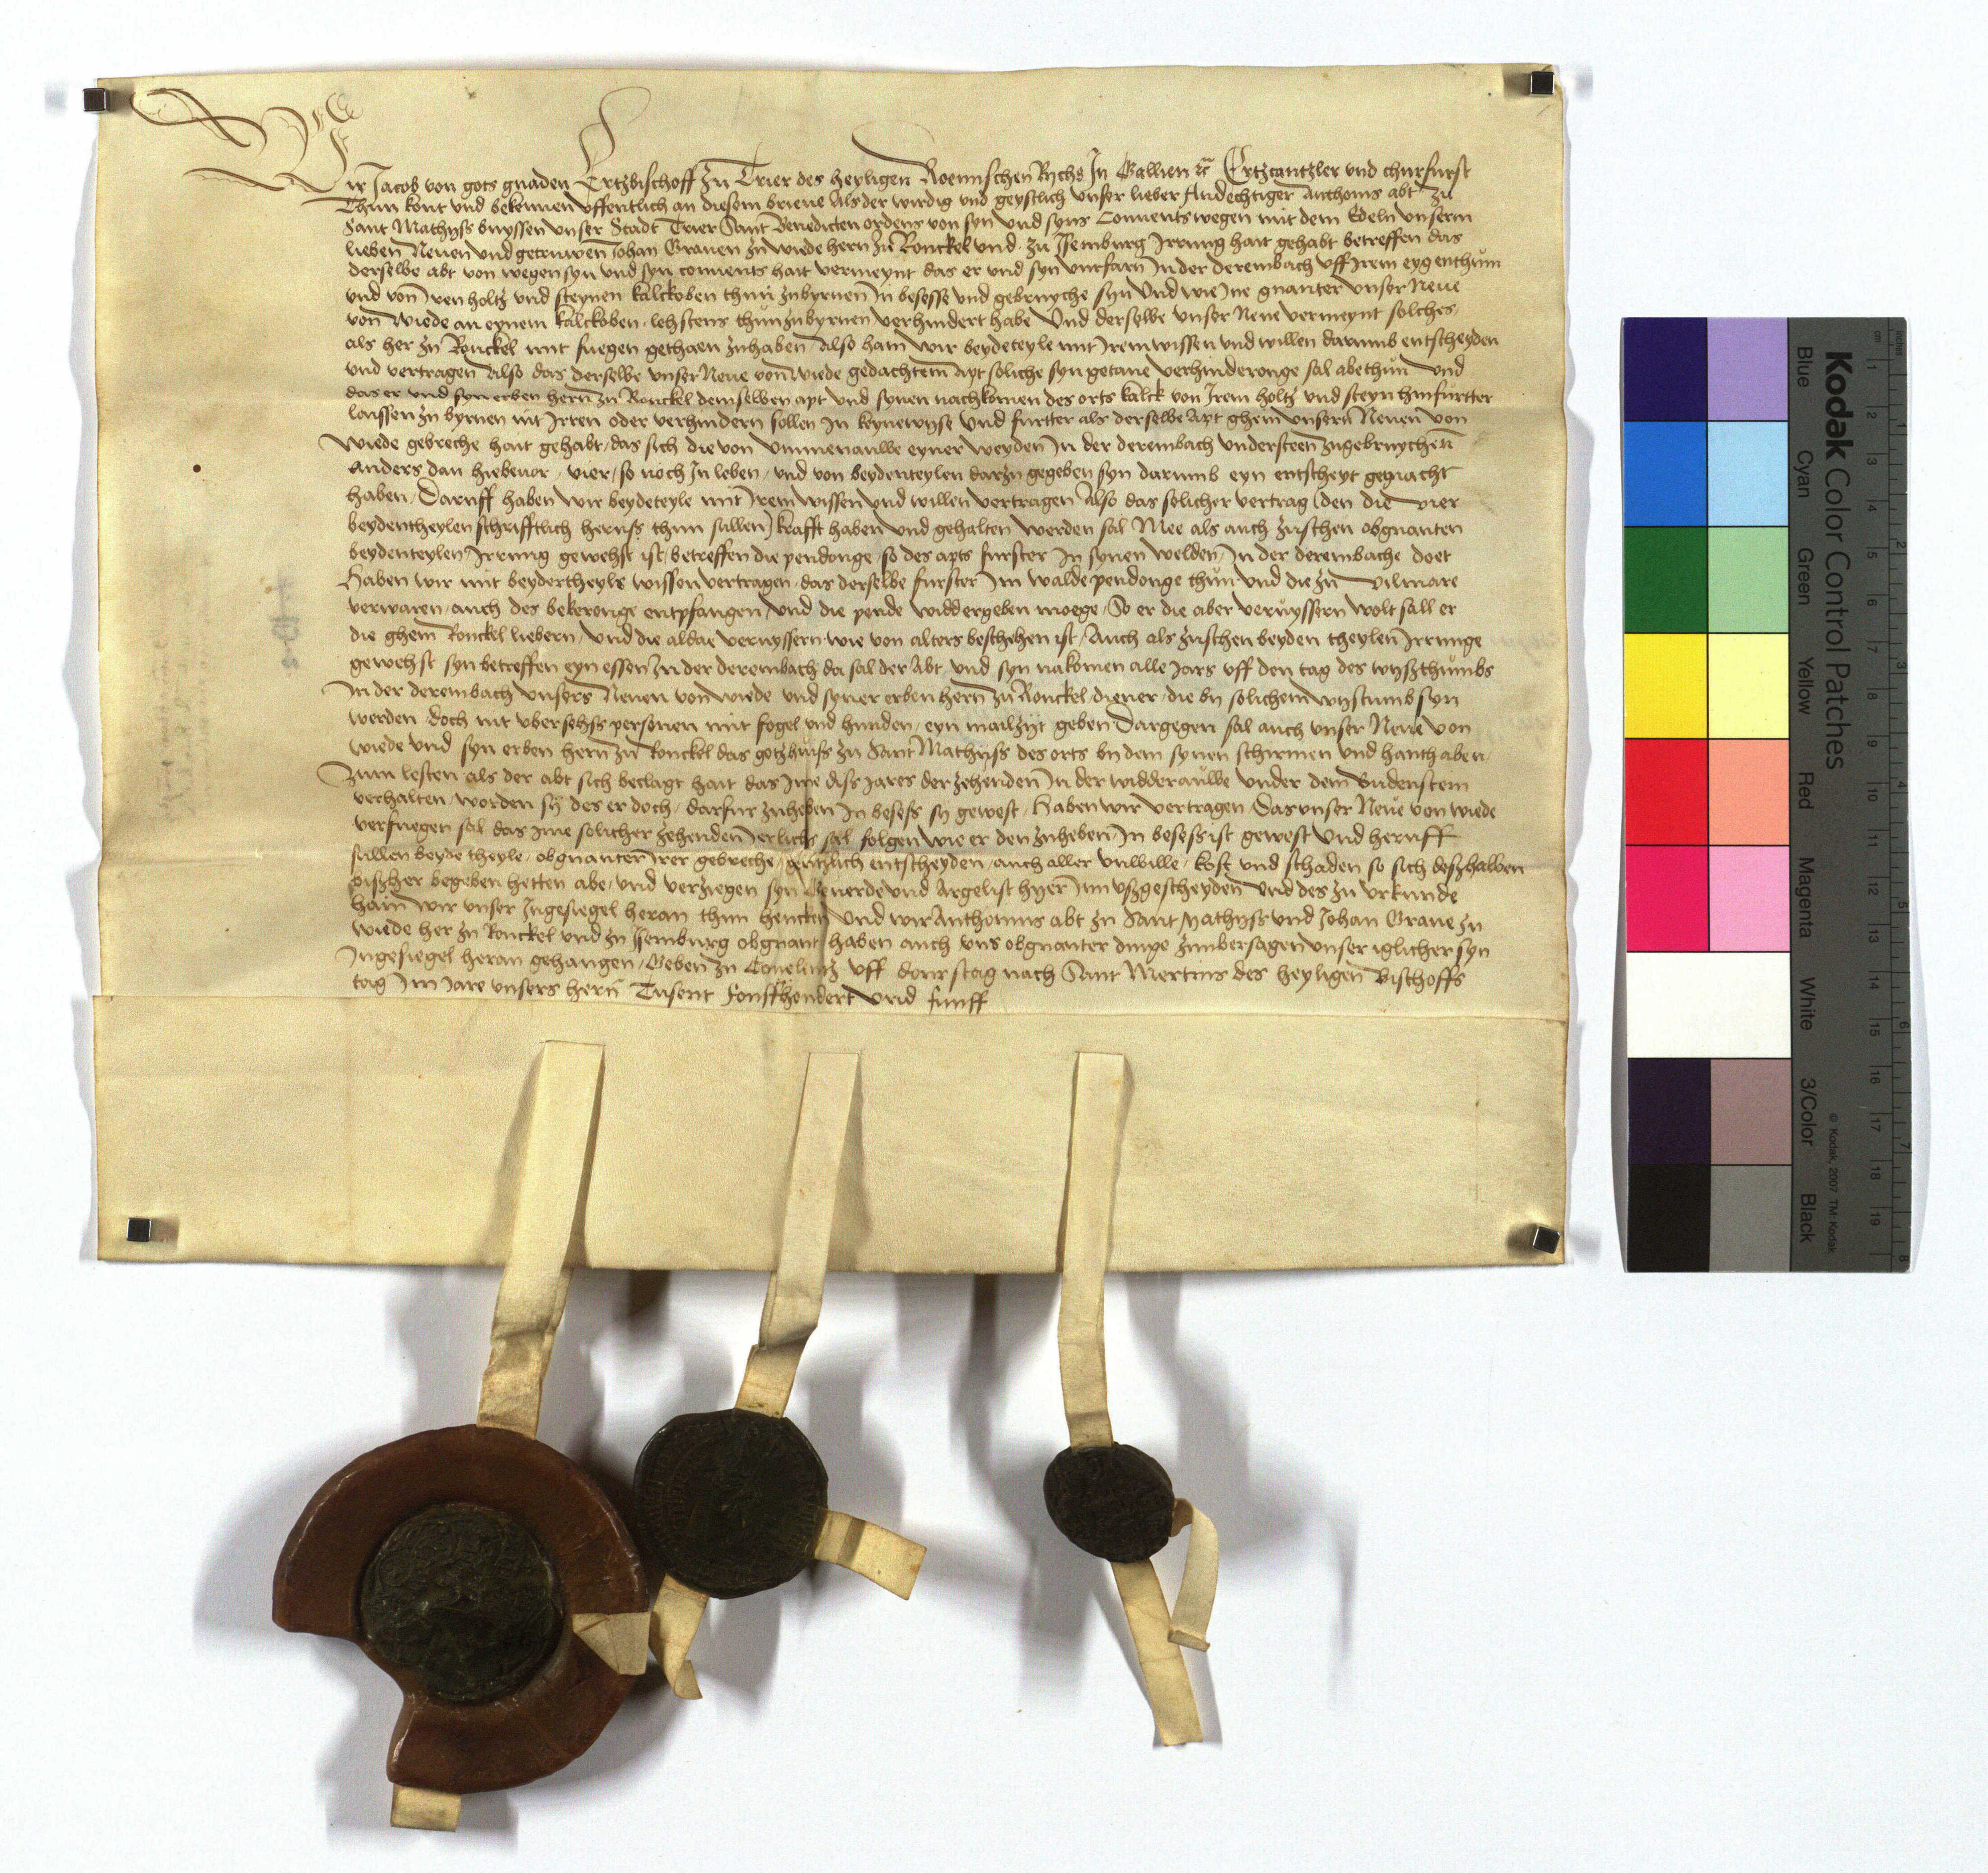 Wir Jacob von gots gnaden Ertzbischoff zu Trier des heyligen Roemischen Rychs In Gallien rc Ertzcantzler und churfurst
Thun kont und bekennen offentlich an diesem brieue Als der wirdig und geystlich unser lieber Andechtiger Anthonis abt zu
Sant Mathyss buyssen unser Stadt Trier Sant Benedicten ordens von syn und syns Conuents wegen mit dem Edeln unserm
lieben Neuen und getruwen Johan Grauen zu wiede hern zu Ronckel und zu Jsemburg Jrrung hait gehabt betreffen das
derselbe abt von wegen syn und syn conuents hait vermeynt das er und syn vurfarn In der derembach uff Jrem eygenthum
und von Jren holtz und steynen kalckoben thun zubyrnen In besesse und gebruyche syn Und wie Jne gnanter unser Neue
von Wiede an eynem kalckoben lehstens thun zubyrnen verhindert habe Und derselbe unser Neue vermeynt solches
als her zu Ronckel mit fuegen gethaen zuhaben Also hain wir beydeteyle mit Jrem wissen und willen darumb entscheyden
und vertragen Also das derselbe unser Neue von Wiede gedachtem Apt soliche syn getane verhinderonge sal abethun und
das er und syn erben hern zu Ronckel demselben apt und synen nachkomen des orts kalck von Jrem holtz und steyn hinfurtter
laissen zu byrnen nit Jrren oder verhindern sollen In keynewyse Und furtter als derselbe Apt ghein unsern Neuen von
Wiede gebreche hait gehabt das sich die von Ummenauwe eyner weyden In der derembach understeen zugebruychen
anders dan hiebeuor vier so noch In leben und von beydenteylen darzu gegeben syn darumb eyn entscheyt gemacht
haben Daruff haben wir beydeteyle mit Jrem wissen und willen vertragen Also das solicher vertrag (den die vier
beydentheylen schrifftlich heruss thun sullen) krafft haben und gehalten werden sal Mee als auch zuschen obgnanten
beydenteylen Jrrung gewehst ist betreffen die pendonge so des apts furster In synen welden In der derembache doet
Haben wir mit beydertheyls wissen vertragen das derselbe furster Im walde pendonge thun und die zu vilmare
verwaren auch des bekeronge entpfangen und die pende widdergeben moege So er die aber veruyssern wolt sall er
die ghein Ronckel liebern und die aldae veruyssern wie von alters beschehen ist Auch als zuschen beyden theylen Jrrunge
gewehst syn betreffen eyn essen In der derembach da sal der Abt und syn nakomen alle Jars uff den tag des wyszthumbs
In der derembach unsers Neuen von Wiede und syner erben hern zu Ronckel diener die by solichem wystumb syn
werden doch nit uber sehss personen mit fogel und hunden eyn mailzyt geben Dargegen sal auch unser Neue von
Wiede und syn erben hern zu Ronckel das gotzhuiss zu Sant Mathyss des orts by dem synen schirmen und hanthaben
Zum lesten als der abt sich beclagt hait das Jme diss Jares der zehenden In der widderauwe under dem Budenstem
verhalten worden sy des er doch darfur zuheben In besess sy gewest Haben wir vertragen Das unser Neue von Wiede
verfuegen sal das Jme solicher zehenden erlichs sal folgen wie er den zuheben In besess ist gewest Und heruff
sullen beyde theyle obgnanter Jrer gebreche gentzlich entscheyden auch aller unwille kost und schaden so sich deszhalben
biszher begeben hetten abe und verziegen syn Geuerde und Argelist hyer Inn uszgescheyden Und des zu Urkunde
hain wir unser Ingesiegel heran thun hencken Und wir Anthonius abt zu Sant Mathyss und Johan Graue zu
Wiede her zu Ronckel und zu Jsemburg obgnant haben auch uns obgnanter dinge zuubersagen unser iglicher syn
Ingesiegel heran gehangen Geben zu Couelentz uff donrstag nach Sant Mertins des heyligen Bischoffs
tag Im Jare unsers hern Tusent Fonffhondert und funff
Kodak Color Control Patches
Blue Cyan Green Yellow Red Magenta White 3/Color Black
© Kodak, 2007 TM: Kodak
cm 1 2 3 4 5 6 7 8 9 10 11 12 13 14 15 16 17 18 19
inches 1 2 3 4 5 6 7 8